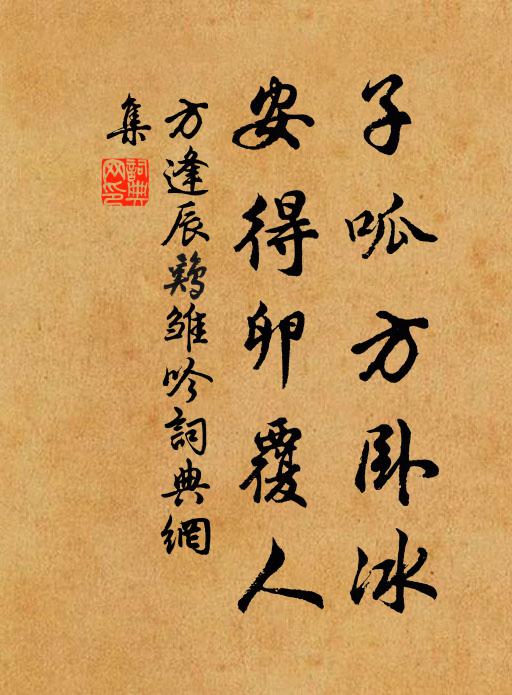 子呱方卧冰
安得卵覆人
方逢辰鷄雏吟詞典網
集
詞典
网印